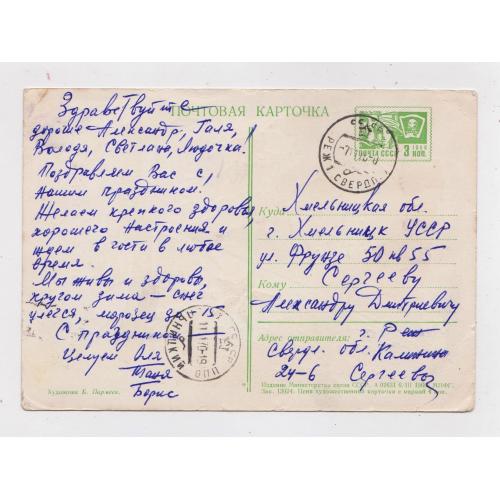 ПОЧТОВАЯ КАРТОЧКА
Здравствуйте
дорогие Александр, Галя,
Володя, Светлана, Людочка.
Поздравляем Вас с
нашим праздником.
Желаем крепкого здоровья,
хорошего настроения и
ждем в гости в любое
время.
Мы живы и здоровы,
кругом зима – снег
улегся, морозец до -15
С праздником
Целуем Оля
Таня
Борис
Художник Б. Пармеев.
ПОЧТА СССР
3 КОП.
1966
РЕЖ СВЕРДЛ.
Куда Хмельницкая обл.
г. Хмельницк УССР
ул. Фрунзе 50 кв 55
Кому Сергееву
Александру Дмитриевичу
Адрес отправителя: г. Реж
Свердл. обл. Калинина
24-6 Сергеевы
Издание Министерства связи СССР.
Цена художественной карточки с маркой 4 коп.